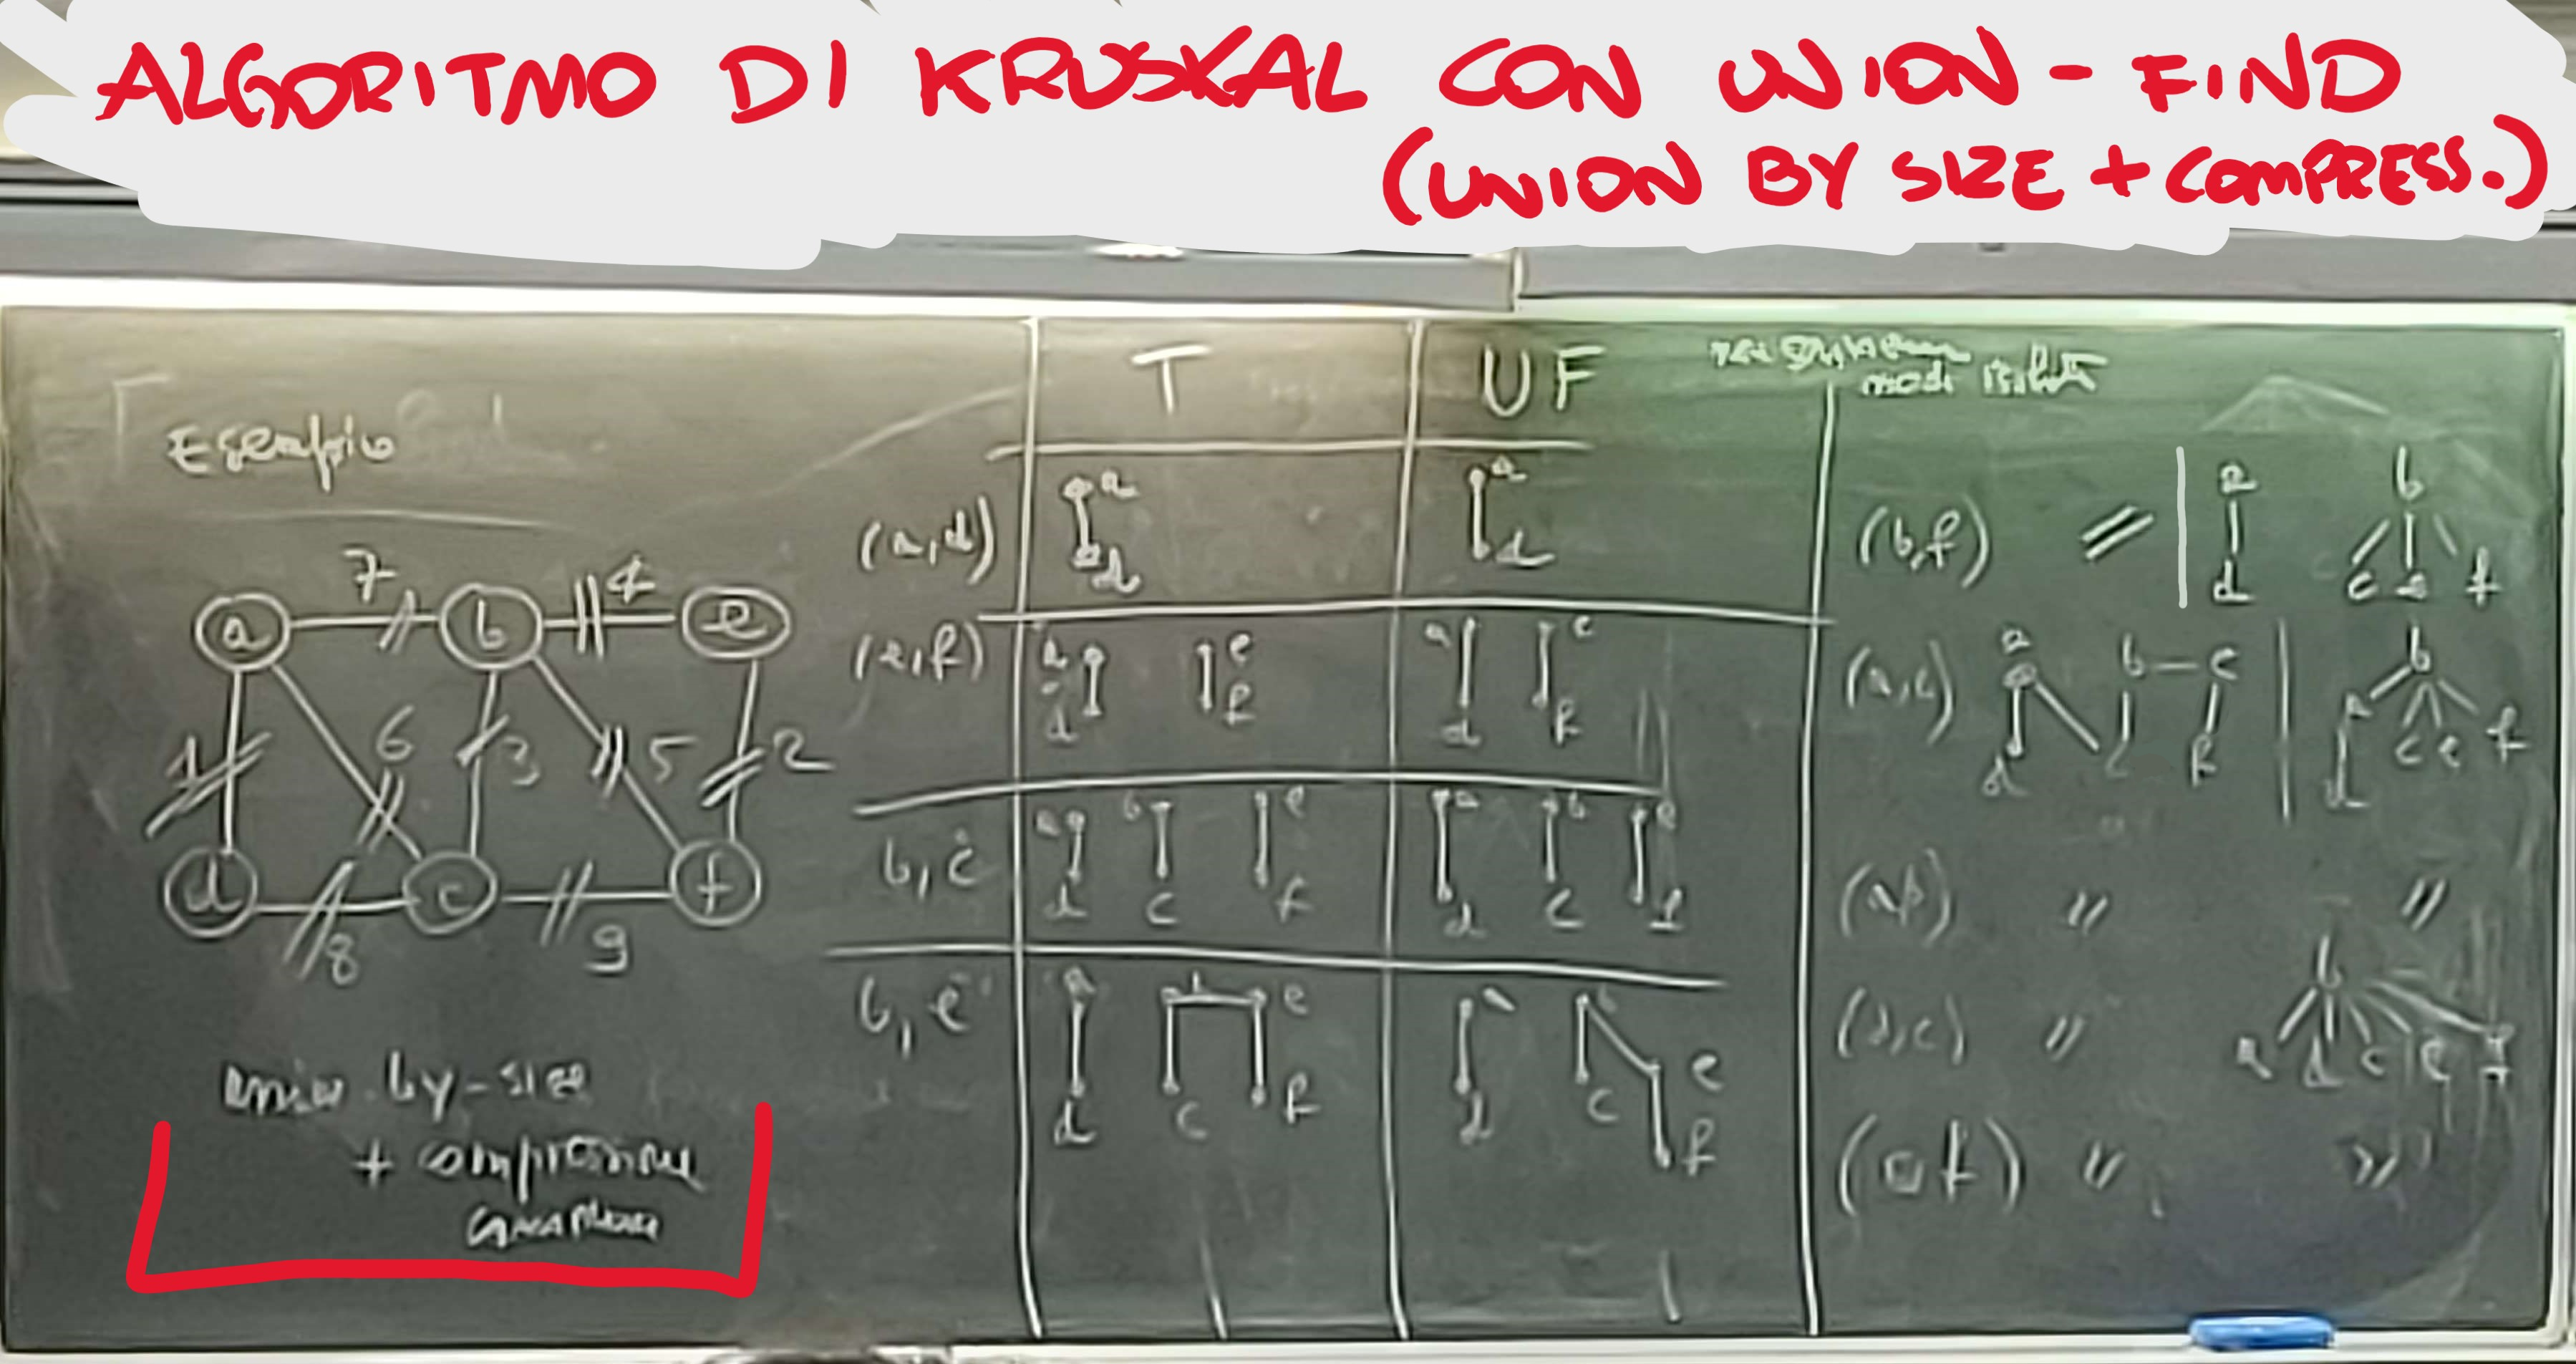 ALGORITMO DI KRUSKAL CON UNION - FIND
(UNION BY SIZE + COMPRESS.)
Esempio
7
4
a
b
e
1
6
3
5
2
d
c
f
8
9
union by-size
+ compressione
T
UF
nodi isolati
(a,d)
a
d
a
d
(e,f)
a
d
e
f
a
d
e
f
b,c
a
d
b
c
e
f
a
d
b
c
e
f
b,e
a
d
b
e
c
f
a
d
b
c
e
f
(b,f) //
a
d
b
c e f
(a,c)
a
b – e
d
c
f
b
a
d
c e f
(a,b) // //
(d,c) //
b
a d c e f
(c,f) // //